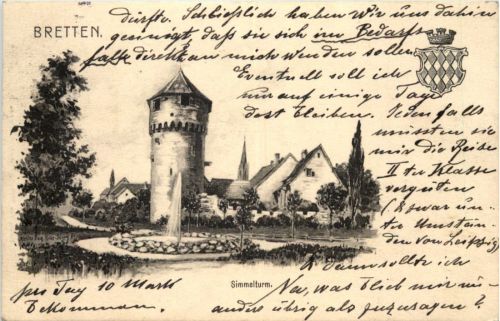 BRETTEN.
dürfte. Schließlich haben wir uns dahin
geeinigt, daß sie sich im Bedarfs
falle direkt an mich wenden sollen
Eventuell soll ich
nur auf einige Tage
dort bleiben. Jeden falls
müssten sie
mir die Reise
II ter Klasse
vergüten
(& zwar un=
ter Umstän=
den von Leipzig)
& dann sollte ich
pro Tag 10 Mark
bekommen.
Na, was blieb mir wei
andere übrig als zuzusagen?
Simmelturm.